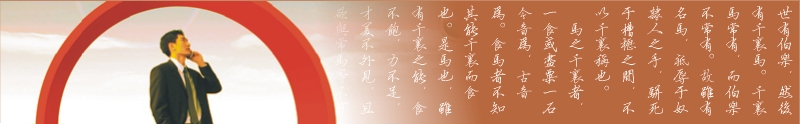 世有伯樂，然後
有千裏馬。千裏
馬常有，而伯樂
不常有。故雖有
名馬，祗辱于奴
隸人之手，駢死
于槽櫪之間，不
以千裏稱也。
馬之千裏者，
一食或盡粟一石
今音爲，古音
爲。食馬者不知
其能千裏而食
也。是馬也，雖
有千裏之能，食
不飽，力不足，
才美不外見，且
欲與常馬